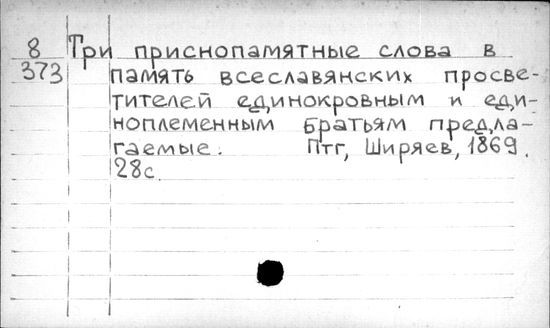 8 Три приснопамятные слова в
373 память всеславянских просве-
тителей единокровным и еди-
ноплеменным братьям предла-
гаемые. Птг, Ширяев, 1869.
28с.